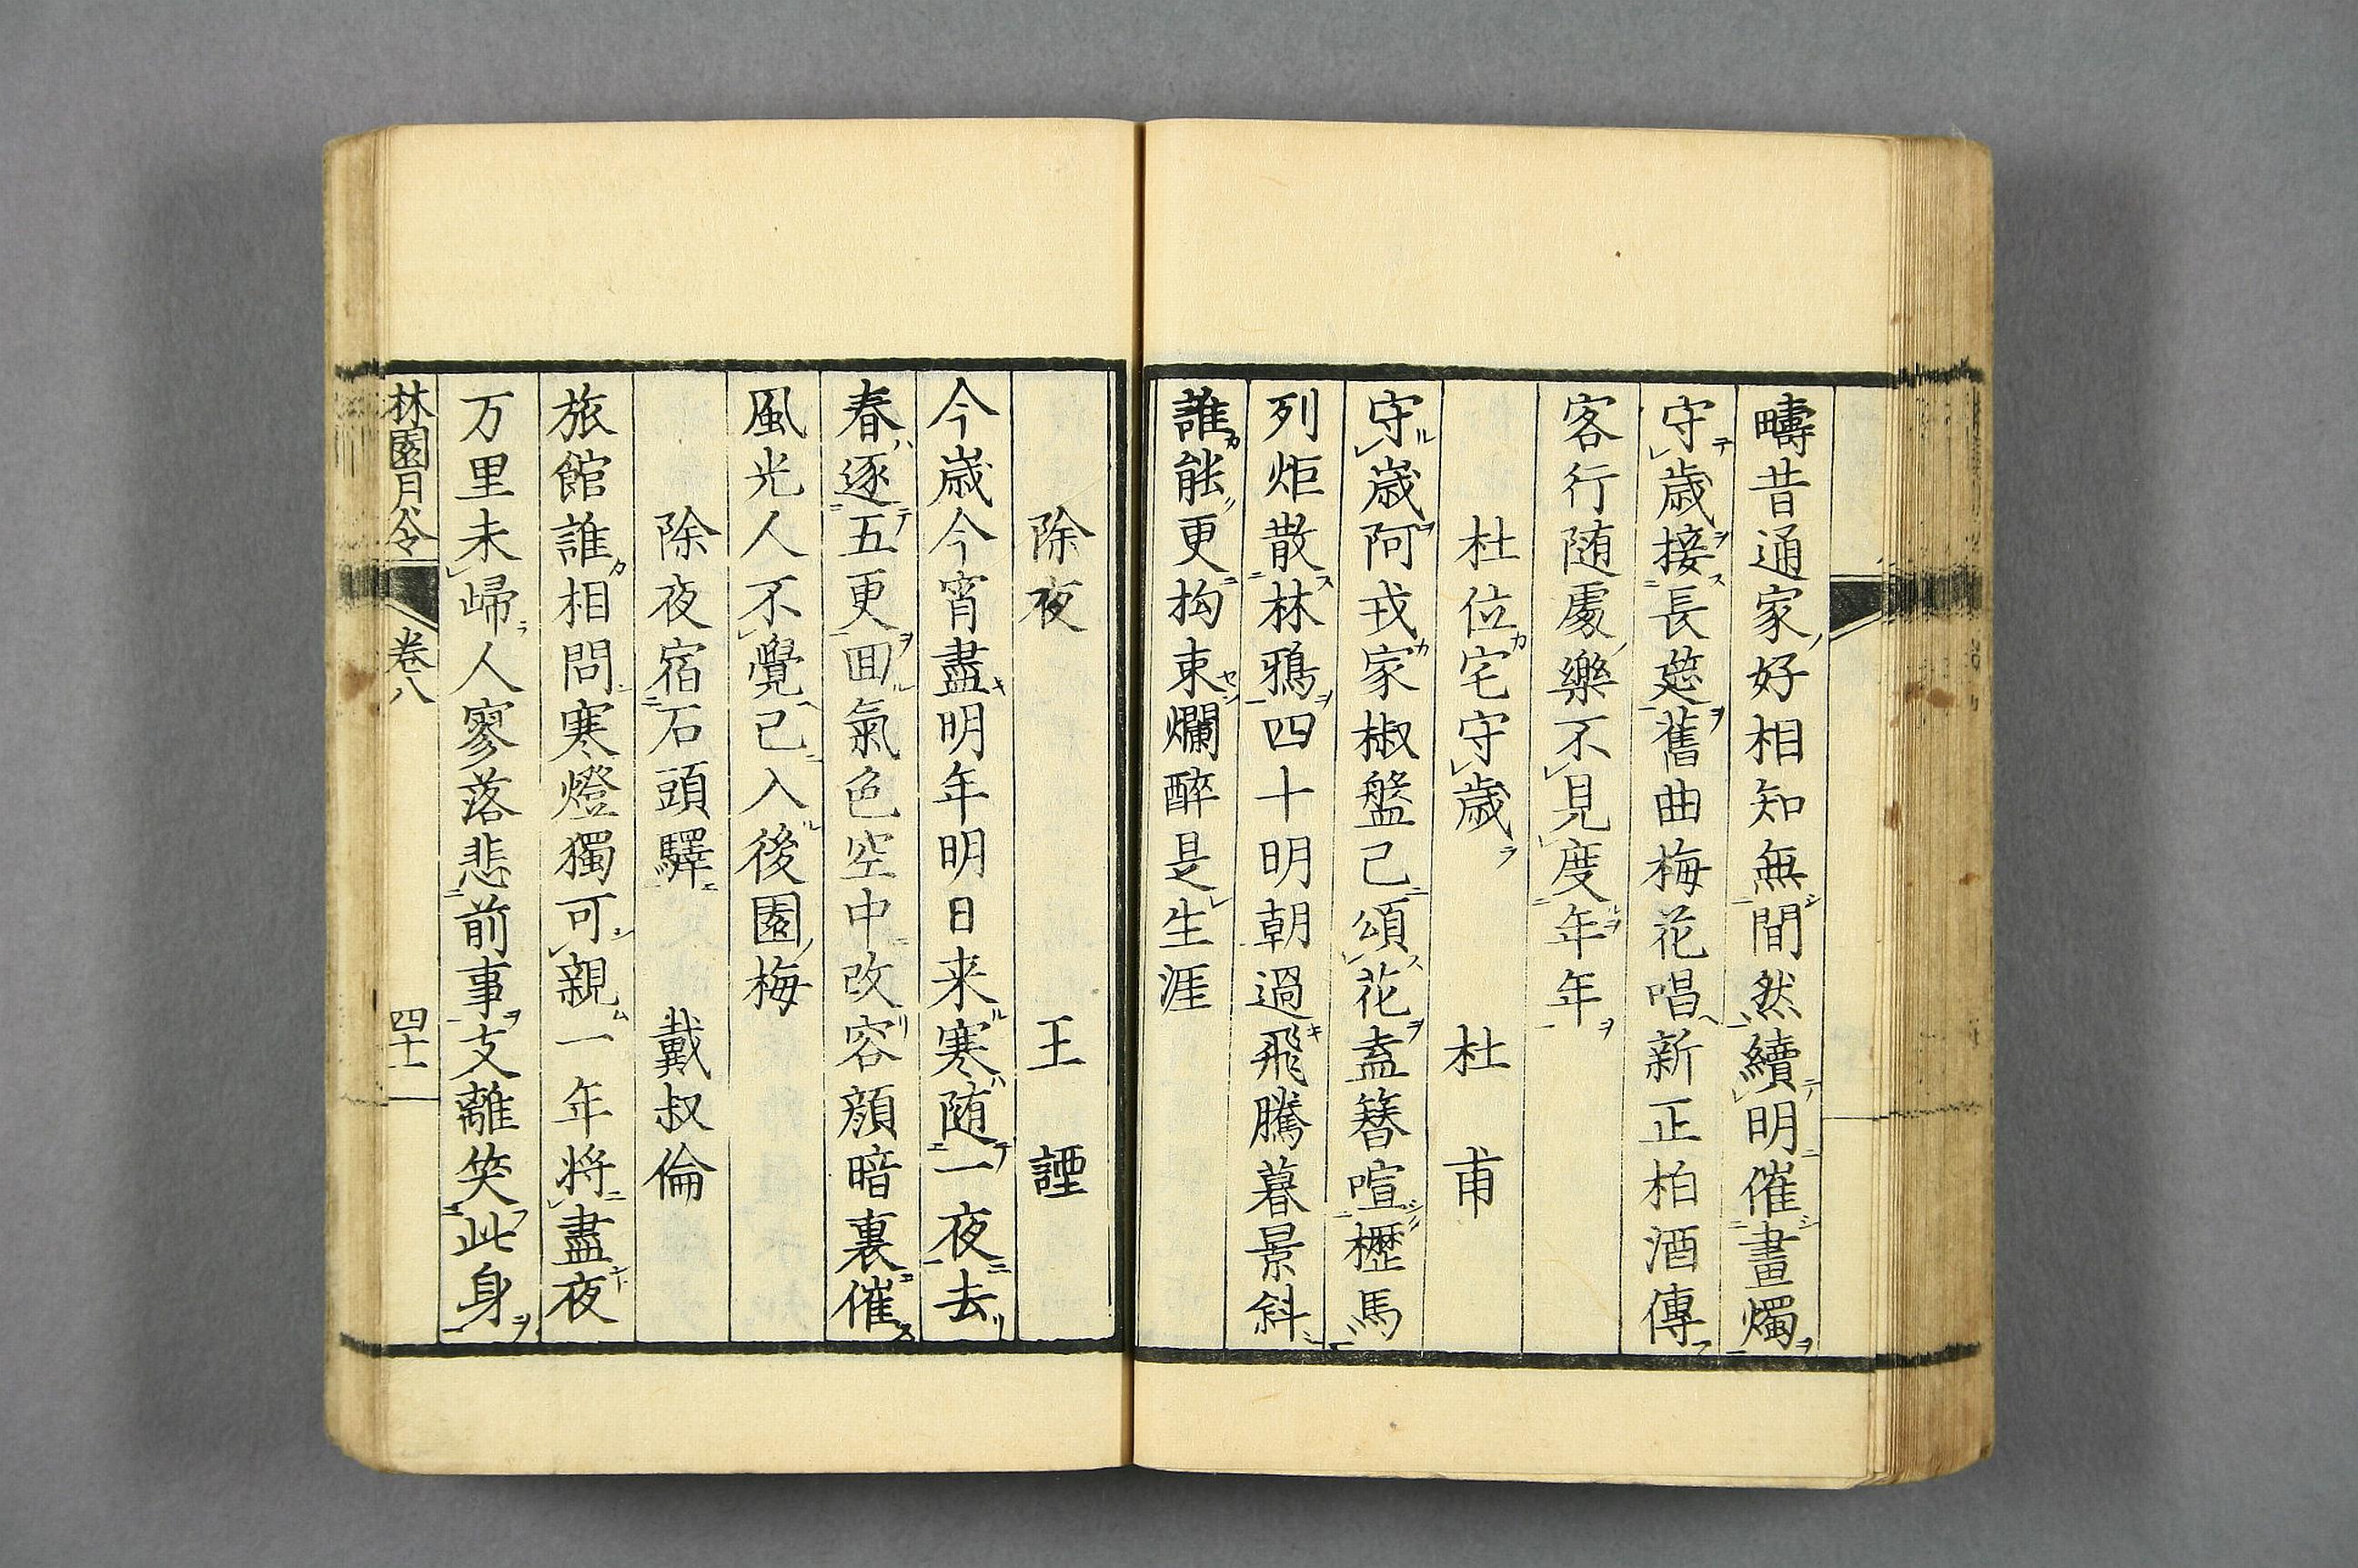 疇昔通家好相知無間然續明催畫燭
守歳接長筵舊曲梅花唱新正柏酒傳
客行随處樂不見度年年
杜位宅守歳　杜甫
守歳阿戎家椒盤已頌花盍簪喧櫪馬
列炬散林鴉四十明朝過飛騰暮景斜
誰能更拘束爛醉是生涯
除夜　王諲
今歳今宵盡明年明日来寒随一夜去
春逐五更囬氣色空中改容顔暗裏催
風光人不覺已入後園梅
除夜宿石頭驛　戴叔倫
旅館誰相問寒燈獨可親一年將盡夜
万里未歸人寥落悲前事支離笑此身
林園月令　卷八　四十一